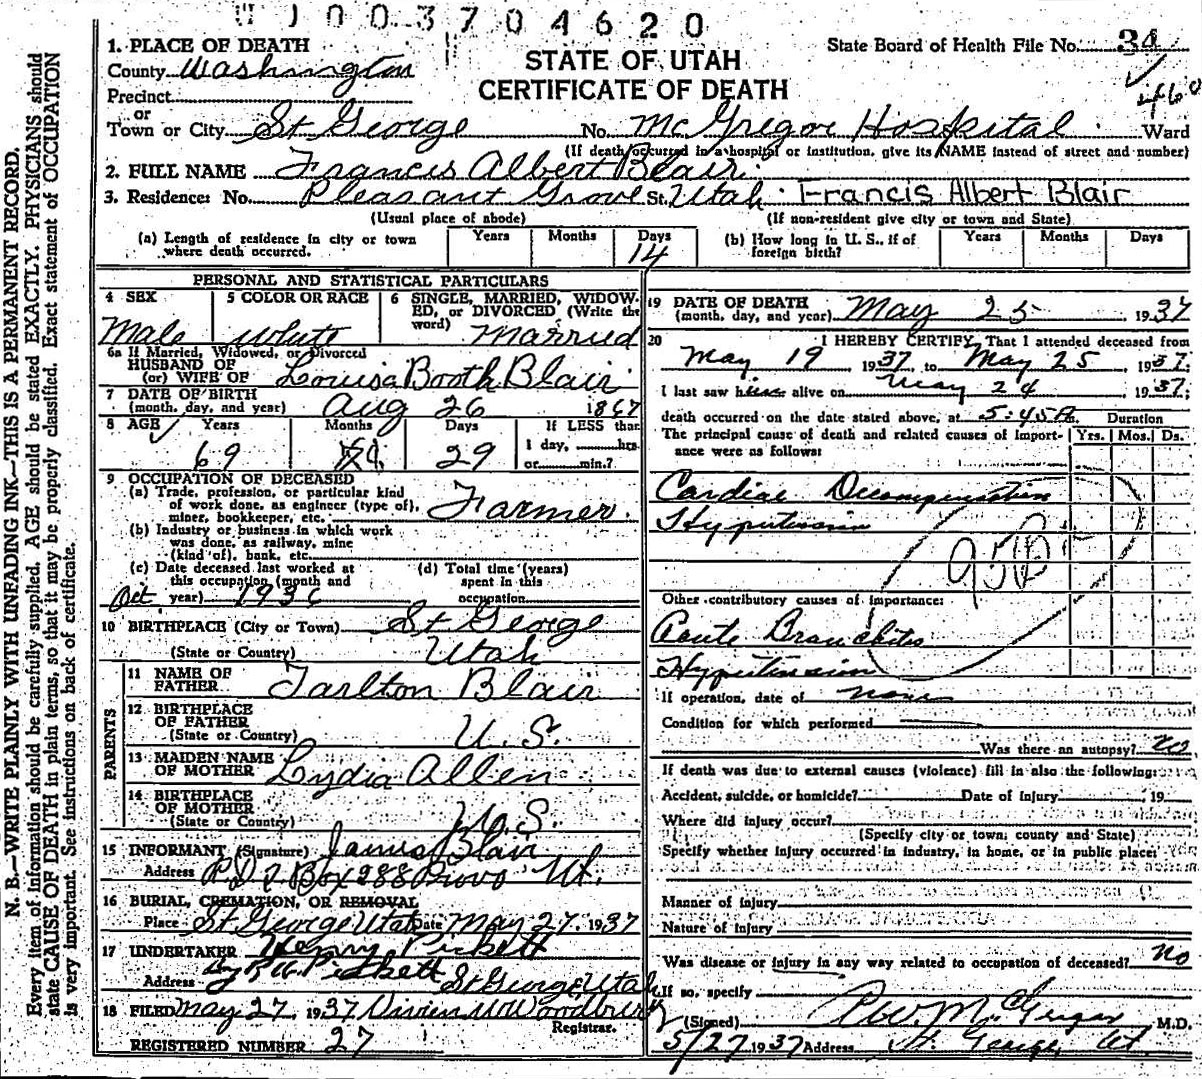 1003704620
State Board of Health File No. 34
460
STATE OF UTAH
CERTIFICATE OF DEATH
1. PLACE OF DEATH
County Washington
Precinct
or
Town or City St George No. McGregor Hospital Ward
(If death occurred in a hospital or institution, give its NAME instead of street and number)
2. FULL NAME Francis Albert Blair
3. Residence: No. Pleasant Grove St. Utah Francis Albert Blair
(Usual place of abode) (If non-resident give city or town and State)
(a) Length of residence in city or town where death occurred. Years Months Days 14
(b) How long in U. S., if of foreign birth? Years Months Days
PERSONAL AND STATISTICAL PARTICULARS
4 SEX Male
5 COLOR OR RACE White
6 SINGLE, MARRIED, WIDOWED, or DIVORCED (Write the word) Married
6a If Married, Widowed, or Divorced
HUSBAND OF
(or) WIFE OF Louisa Booth Blair
7 DATE OF BIRTH
(month, day, and year) Aug 26 1867
8 AGE Years 69 Months Days 29
If LESS than
1 day, hrs.
or min.?
9 OCCUPATION OF DECEASED
(a) Trade, profession, or particular kind
of work done, as engineer (type of),
miner, bookkeeper, etc. Farmer
(b) Industry or business in which work
was done, as railway, mine
(kind of), bank, etc.
(c) Date deceased last worked at
this occupation (month and
year) Oct 1936
(d) Total time (years)
spent in this
occupation
10 BIRTHPLACE (City or Town) St George
(State or Country) Utah
PARENTS
11 NAME OF
FATHER Tarlton Blair
12 BIRTHPLACE
OF FATHER
(State or Country) U. S.
13 MAIDEN NAME
OF MOTHER Lydia Allen
14 BIRTHPLACE
OF MOTHER
(State or Country) U. S.
15 INFORMANT (Signature) James Blair
Address R.D 2 Box 288 Provo Ut.
16 BURIAL, CREMATION, OR REMOVAL
Place St George Utah Date May 27, 1937
17 UNDERTAKER Henry Pickett
Address By Pickett St George Utah
18 FILED May 27, 1937 Woodbury
Registrar.
REGISTERED NUMBER 27
19 DATE OF DEATH
(month, day, and year) May 25 1937
20 I HEREBY CERTIFY, That I attended deceased from
May 19 1937, to May 25 1937;
I last saw him alive on May 24, 1937;
death occurred on the date stated above, at 5:45A. Duration
The principal cause of death and related causes of importance were as follows: Yrs. Mos. Ds.
Cardiac Decompensation
Hypertension
Other contributory causes of importance:
Acute Bronchitis
Hypertension
If operation, date of none
Condition for which performed
Was there an autopsy? No
If death was due to external causes (violence) fill in also the following:
Accident, suicide, or homicide? Date of injury , 19
Where did injury occur?
(Specify city or town, county and State)
Specify whether injury occurred in industry, in home, or in public place:
Manner of injury
Nature of injury
Was disease or injury in any way related to occupation of deceased? No
If so, specify
(Signed) McGregor M.D.
5/27 1937 Address St. George, Ut.
N. B.—WRITE PLAINLY WITH UNFADING INK—THIS IS A PERMANENT RECORD.
Every item of information should be carefully supplied. AGE should be stated EXACTLY. PHYSICIANS should
state CAUSE OF DEATH in plain terms, so that it may be properly classified. Exact statement of OCCUPATION
is very important. See instructions on back of certificate.